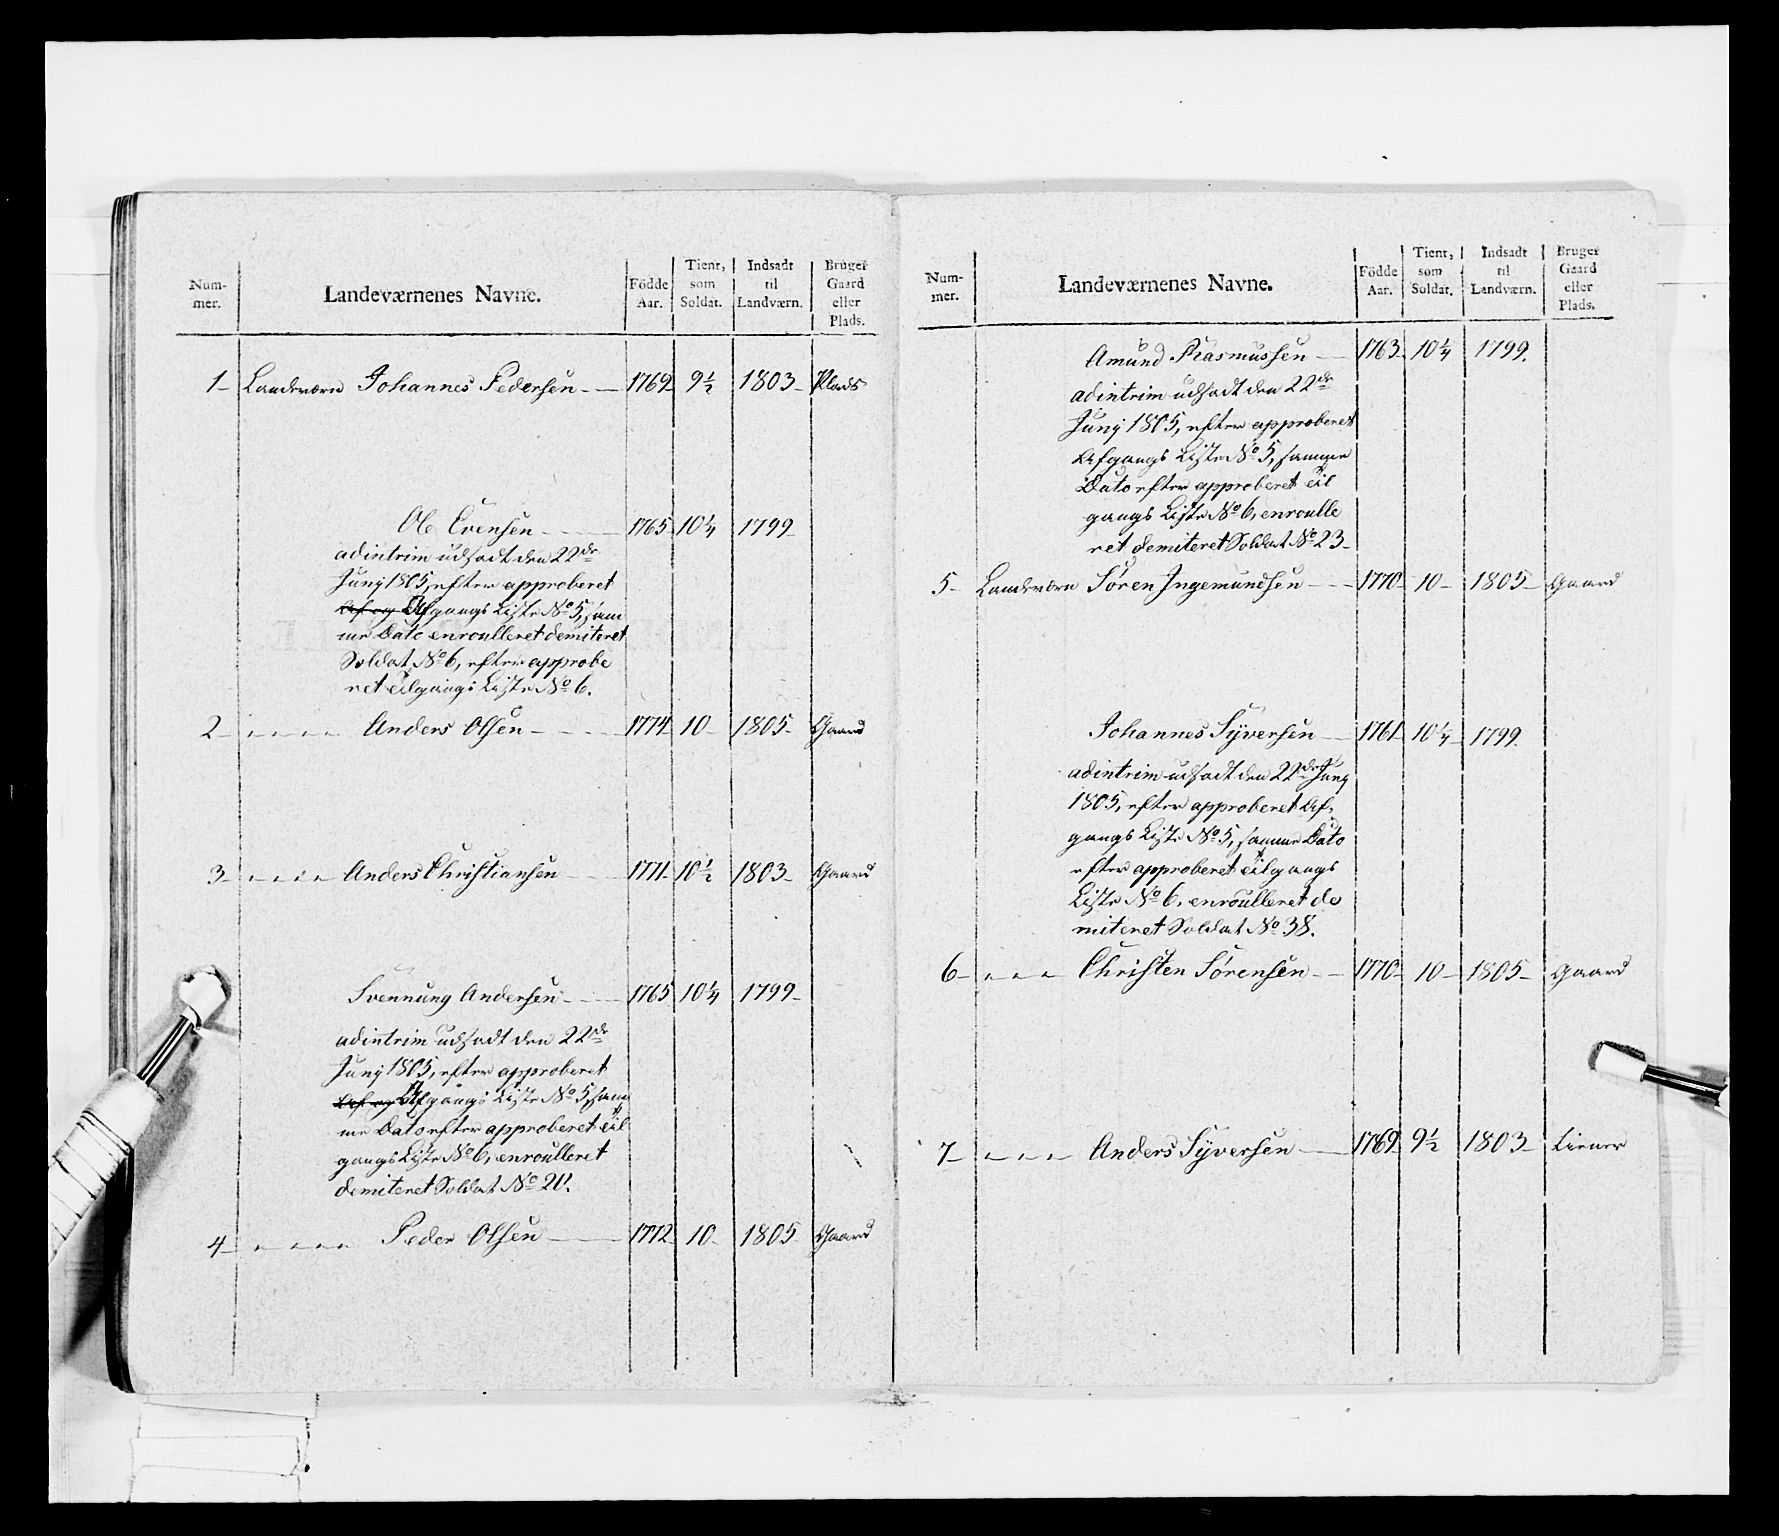 Num-
mer.
Landeværnenes Navne.
Födde
Aar.
Tient,
som
Soldat.
Indsadt
til
Landværn.
Bruger
Gaard
eller
Plads.
1 Landværn Johannes Pedersen 1769 9½ 1803 Plads
Ole Evensen 1765 10¼ 1799
ad intrim udsadt den 22de
Junÿ 1805, efter approberet
Af og Afgangs Liste No 5, sam
me Dato enroulleret demiteret
Soldat No 6, efter approbe
ret Tilgangs Liste No 6.
2 " " " " Anders Olsen 1774 10 1805 Gaard
3 " " " " Anders Christiansen 1771 10½ 1803 Gaard
Svennung Andersen 1765 10¼ 1799
ad intrim udsadt den 22de
Junÿ 1805, efter approberet
Af og Afgangs Liste No 5, sam
me Dato efter approberet Til
gangs Liste No 6, enroulleret
demiteret Soldat No 20.
4 " " " " Peder Olsen 1772 10 1805 Gaard
Num-
mer.
Landeværnenes Navne.
Födde
Aar.
Tient,
som
Soldat.
Indsadt
til
Landværn.
Bruger
Gaard
eller
Plads.
Amund Rasmussen 1763 10¼ 1799.
ad intrim udsadt den 22de
Junÿ 1805, efter approberet
Afgangs Liste No 5, samme
Dato efter approberet Til
gangs Liste No 6, enroulle
ret demiteret Soldat No 23
5 Landværn Sören Ingemundsen 1770 10 1805 Gaard
Johannes Syversen 1761 10¼ 1799
ad intrim udsadt den 22de Junÿ
1805, efter approberet Af,
gangs Liste No 5, samme Dato
efter approberet Tilgangs
Liste No 6, enroulleret de
miteret Soldat No 38.
6 " " " Christen Sörensen 1770 10 1805 Gaard
7 " " " Anders Syversen 1769 9½ 1803